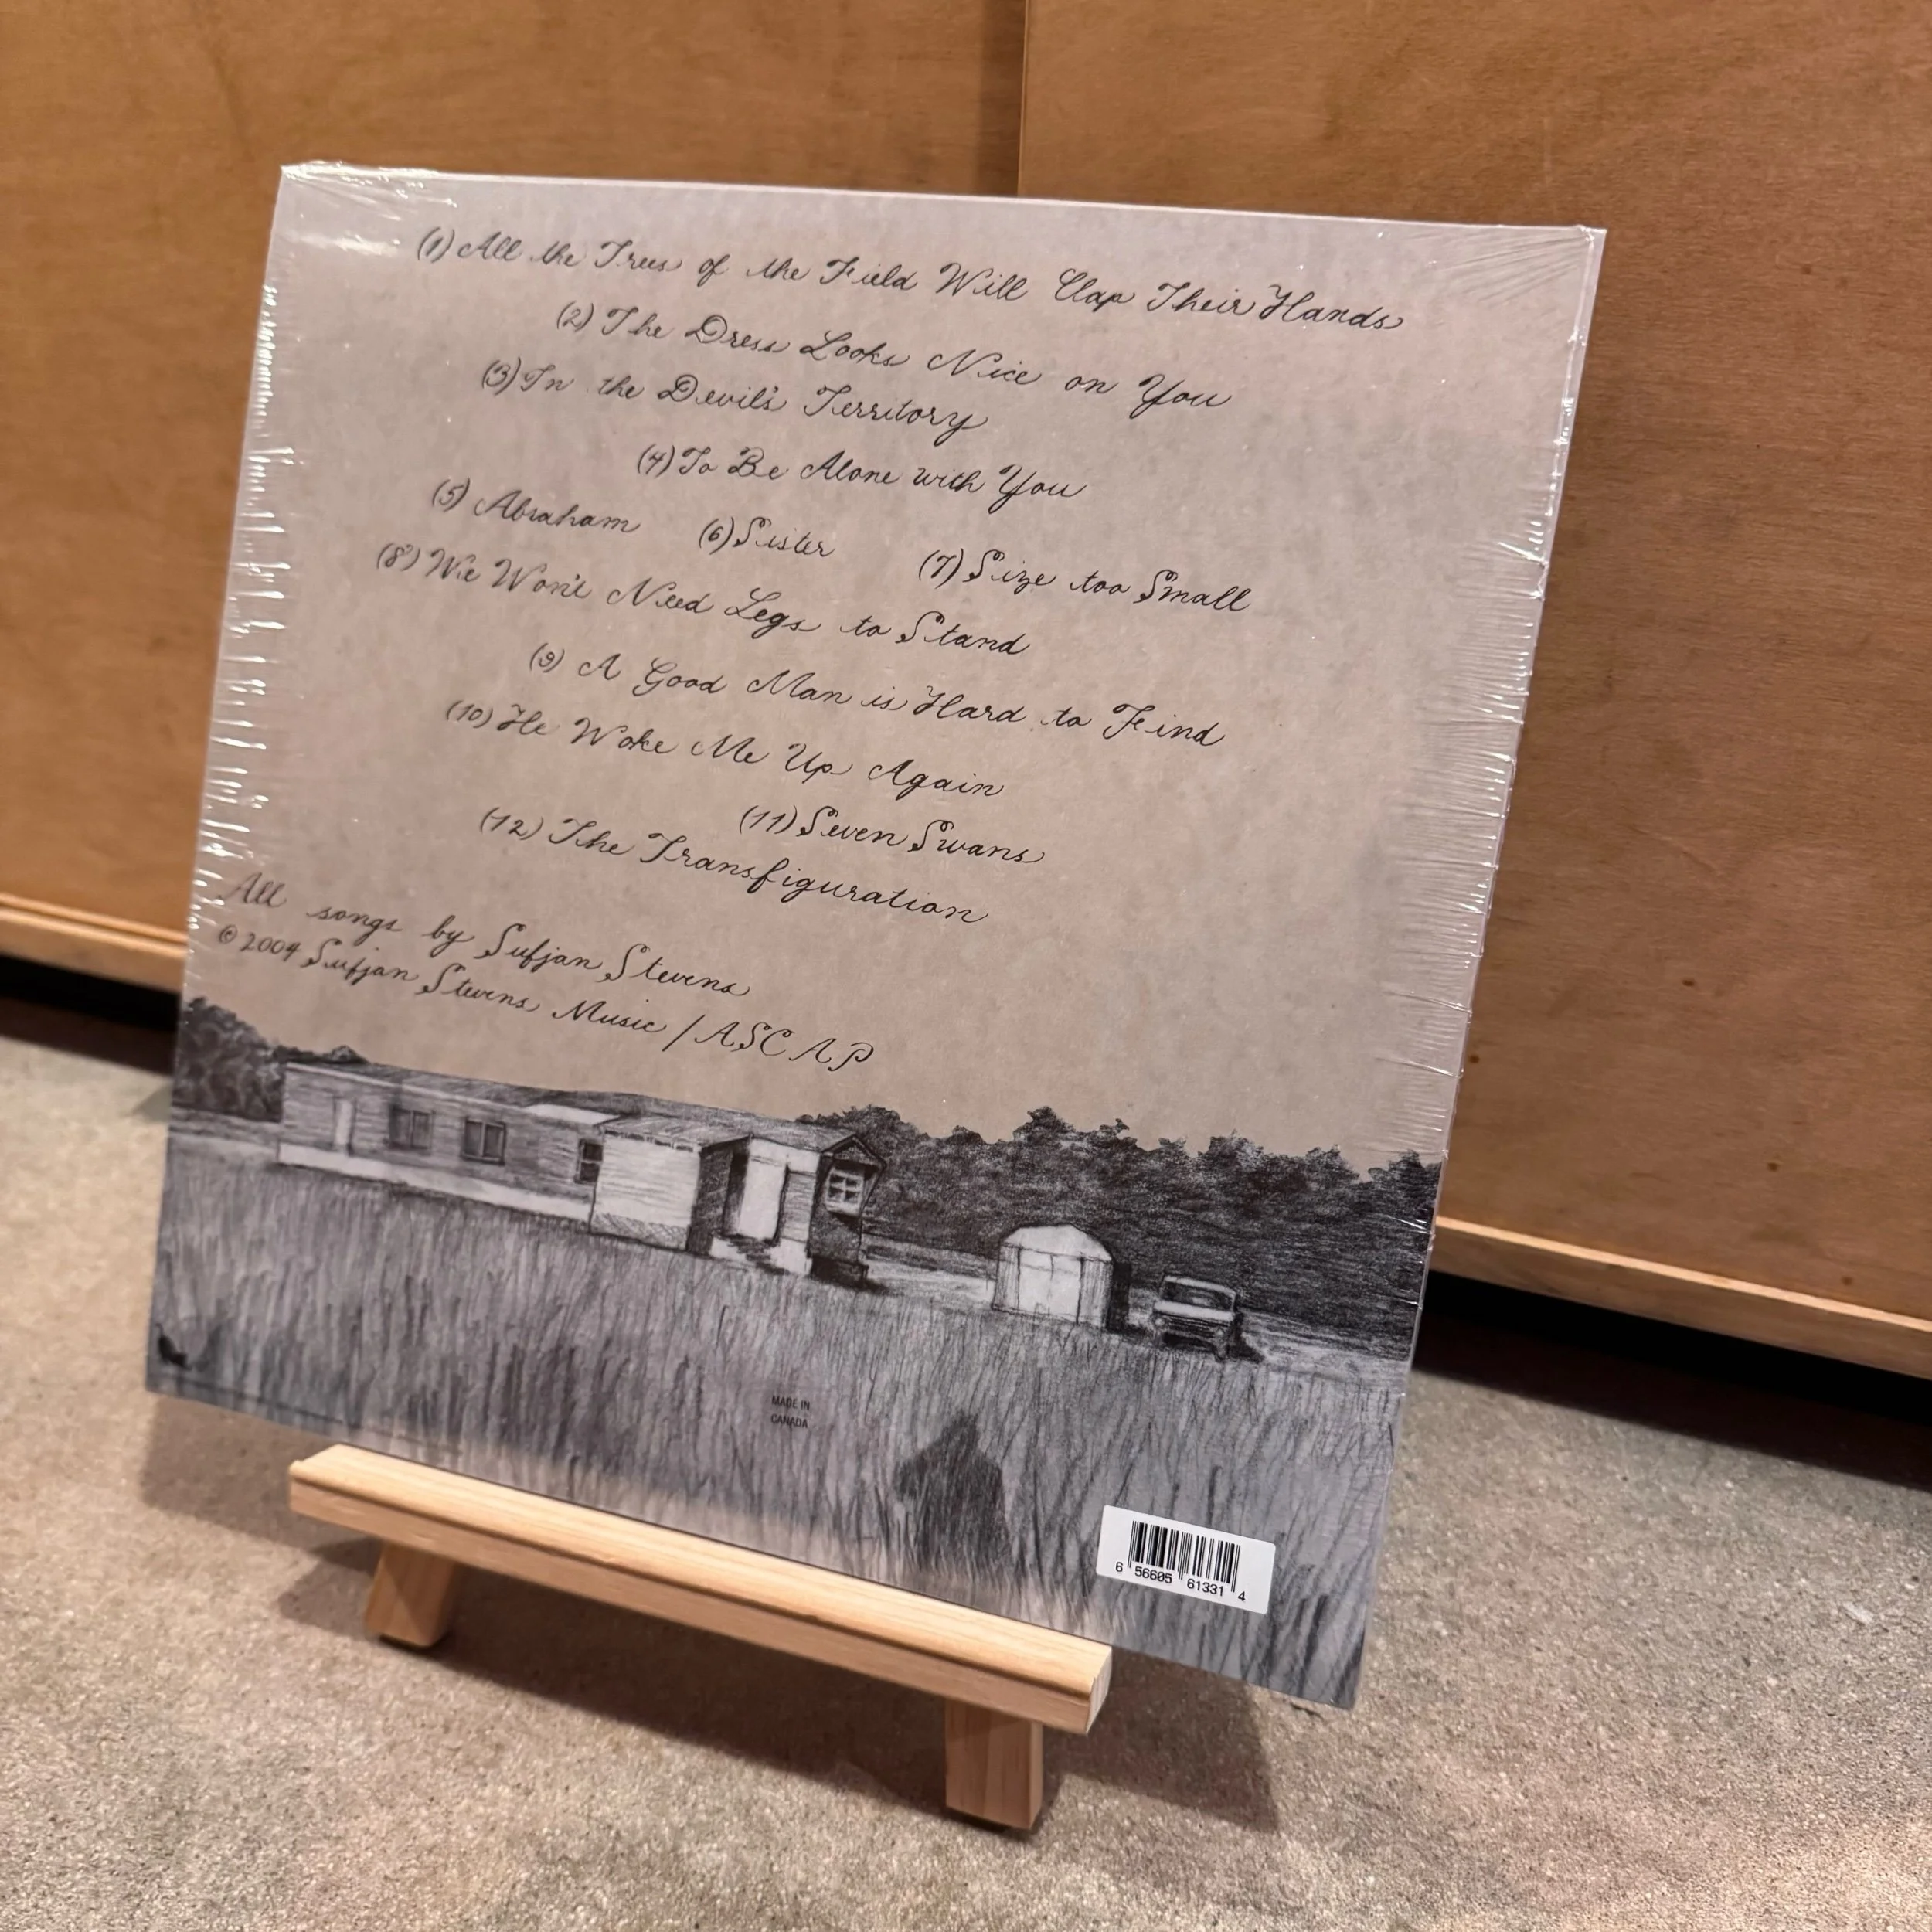 (1) All the Trees of the Field Will Clap Their Hands
(2) The Dress Looks Nice on You
(3) In the Devil's Territory
(4) To Be Alone with You
(5) Abraham (6) Sister (7) Size too Small
(8) We Won't Need Legs to Stand
(9) A Good Man is Hard to Find
(10) He Woke Me Up Again
(11) Seven Swans
(12) The Transfiguration
All songs by Sufjan Stevens
© 2004 Sufjan Stevens Music / ASCAP
MADE IN
CANADA
6 56605 61331 4